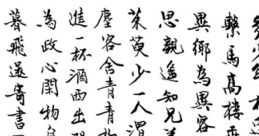 繫馬高樓垂
異鄉為異客
思親遥知兄弟
茱萸少一人渭
塵客舍青青
進一杯酒西出陽
為政心閑物自
暮飛還寄書